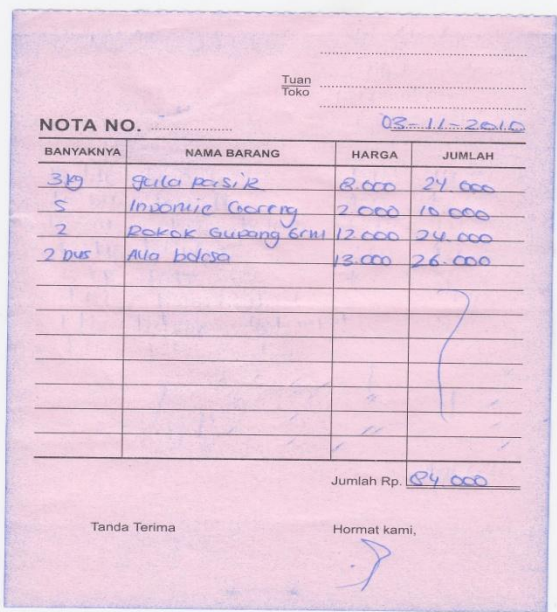 Tuan
Toko
NOTA NO.
03-11-2010
BANYAKNYA NAMA BARANG HARGA JUMLAH
3 kg gula pasir 8.000 24.000
5 Indomie Goreng 2.000 10.000
2 Rokok Gudang Grm 12.000 24.000
2 Dus 13.000 26.000
Jumlah Rp. 84.000
Tanda Terima Hormat kami,